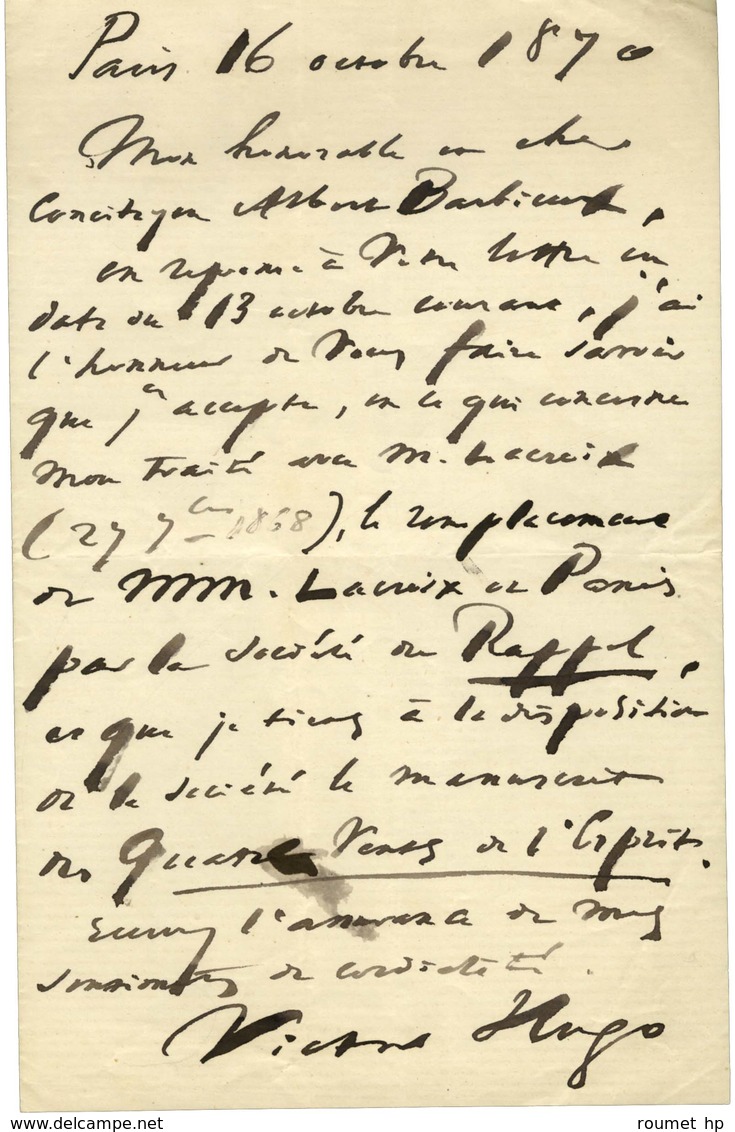 Paris 16 octobre 1870
Mon honorable et cher
Concitoyen Albert Barbieux,
en réponse à votre lettre en
date du 13 octobre courant, j'ai
l'honneur de vous faire savoir
que j'accepte, en ce qui concerne
mon traité avec M. Lacroix
(27 7bre 1868), le remplacement
de MM. Lacroix et Panis
par la société du Rappel,
et que je tiens à la disposition
de la société le manuscrit
des Quatre Vents de l'Esprit.
l'assurance de mes
sentiments de cordialité.
Victor Hugo
roumet hp
www.delcampe.net